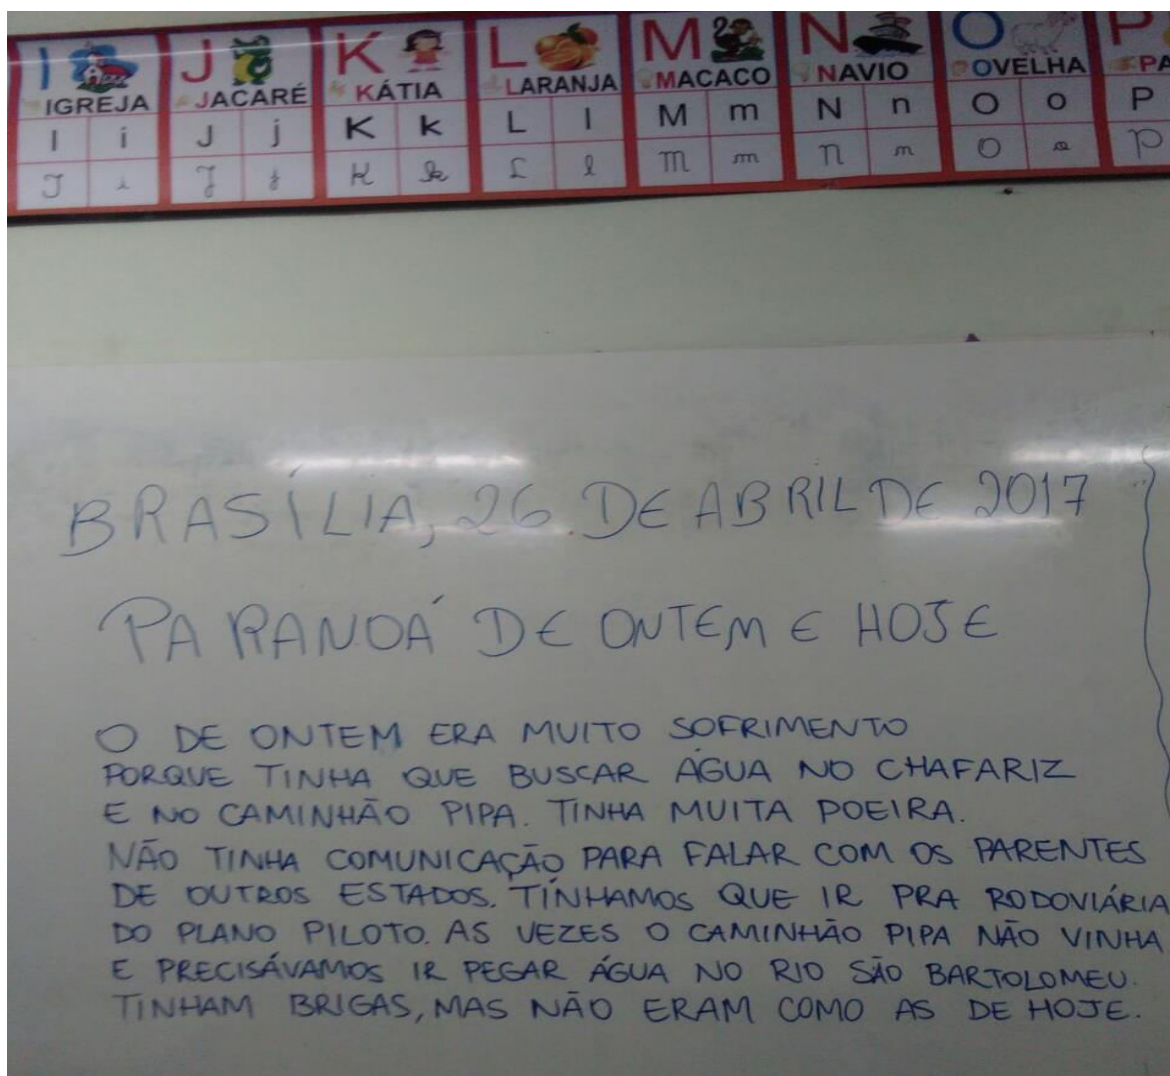 I J K L M N O P
IGREJA JACARÉ KÁTIA LARANJA MACACO NAVIO OVELHA PA
I i J j K k L l M m N n O o P
I i J j K k L l M m N n O o P
BRASÍLIA, 26 DE ABRIL DE 2017
PARANOÁ DE ONTEM E HOJE
O DE ONTEM ERA MUITO SOFRIMENTO
PORQUE TINHA QUE BUSCAR ÁGUA NO CHAFARIZ
E NO CAMINHÃO PIPA. TINHA MUITA POEIRA.
NÃO TINHA COMUNICAÇÃO PARA FALAR COM OS PARENTES
DE OUTROS ESTADOS. TÍNHAMOS QUE IR PRA RODOVIÁRIA
DO PLANO PILOTO. AS VEZES O CAMINHÃO PIPA NÃO VINHA
E PRECISÁVAMOS IR PEGAR ÁGUA NO RIO SÃO BARTOLOMEU.
TINHAM BRIGAS, MAS NÃO ERAM COMO AS DE HOJE.